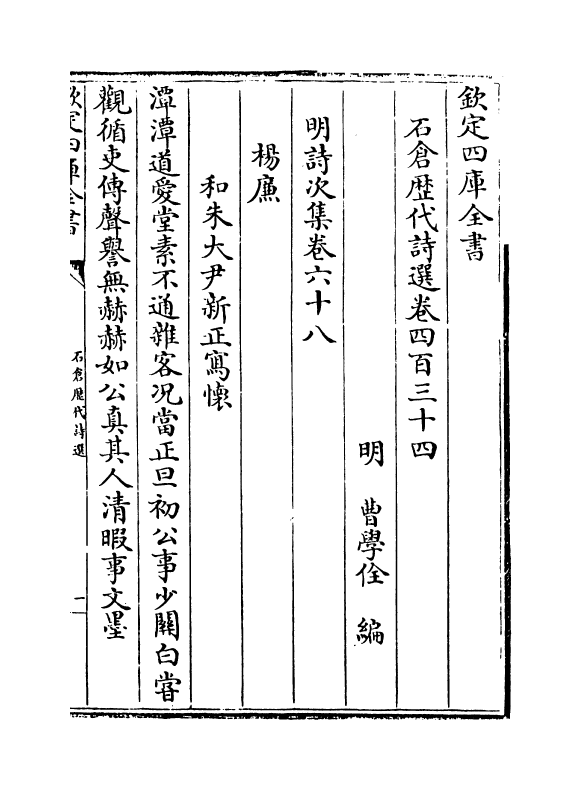 欽定四庫全書
石倉歴代詩選卷四百三十四
明　曹學佺　編
明詩次集卷六十八
楊廉
和朱大尹新正寫懷
潭潭道愛堂素不通雜客况當正旦初公事少關白嘗
觀循吏傳聲譽無赫赫如公真其人清暇事文墨
欽定四庫全書
石倉歴代詩選
一